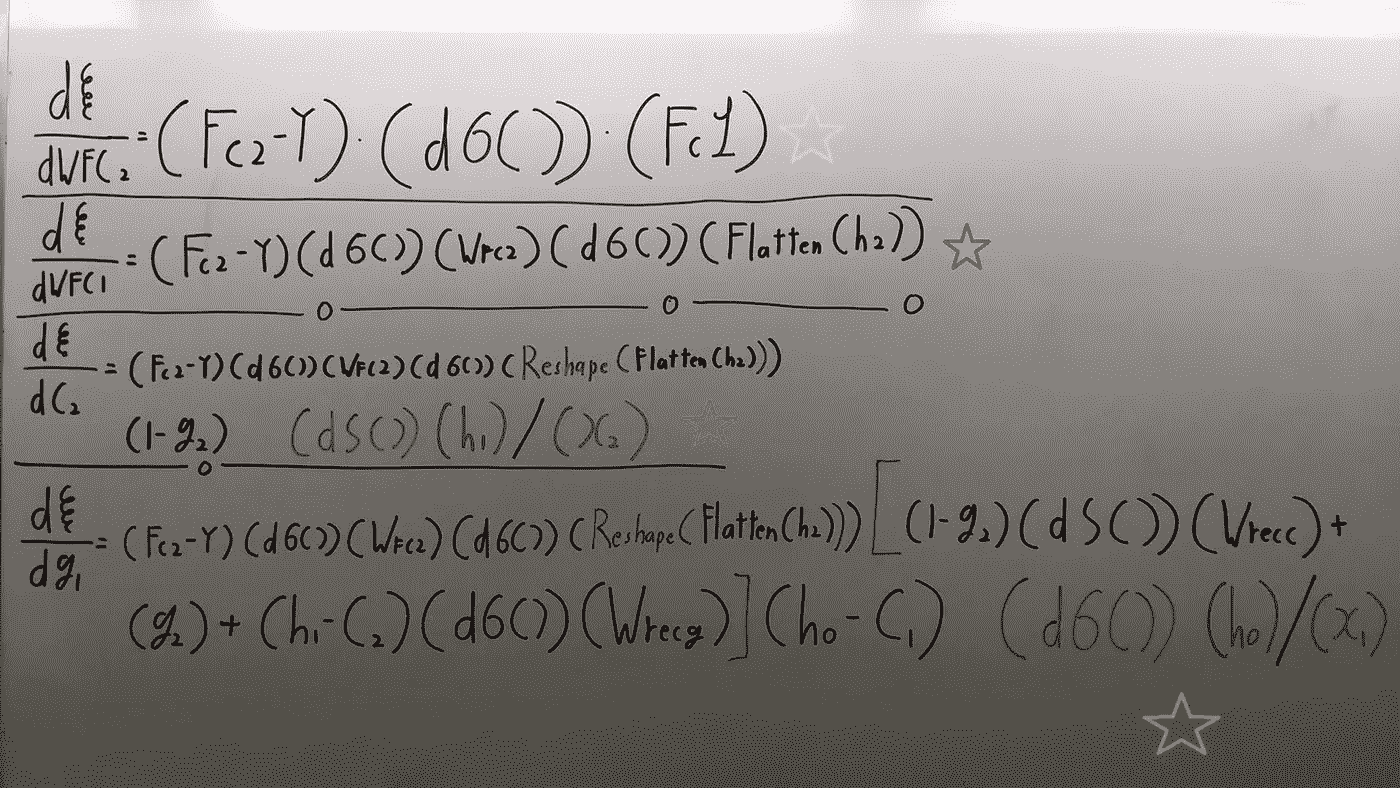 dξ/dWFC2 = (FC2-Y)·(dσ())·(FC1)
dξ/dWFC1 = (FC2-Y)(dσ())(WFC2)(dσ())(Flatten(h2))
dξ/dC2 = (FC2-Y)(dσ())(WFC2)(dσ())(Reshape(Flatten(h2)))
(1-g2) (dS())(h1)/(x2)
dξ/dg1 = (FC2-Y)(dσ())(WFC2)(dσ())(Reshape(Flatten(h2)))[(1-g2)(dS())(Wrecc)+
(g2)+(h1-C2)(dσ())(Wrecg)](h0-C1) (dσ()) (h0)/(x1)